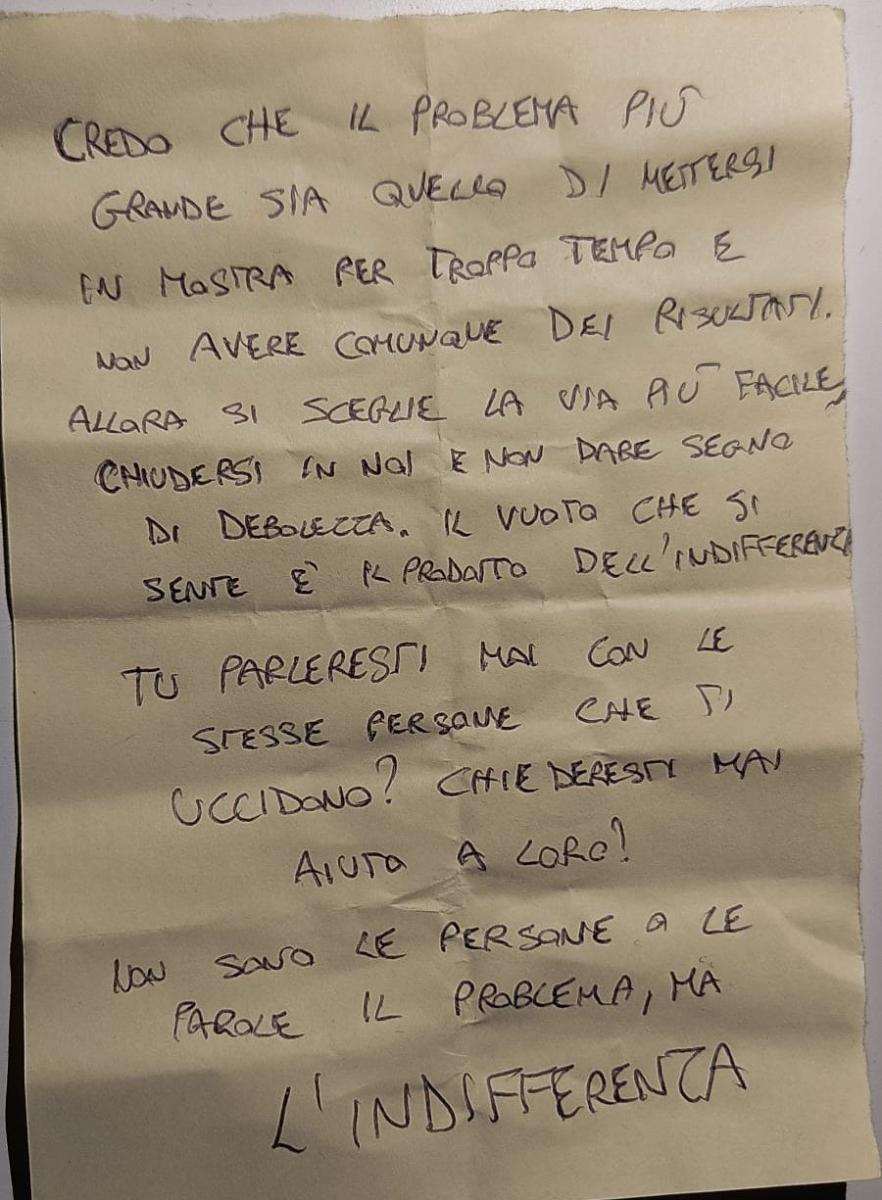 CREDO CHE IL PROBLEMA PIÙ
GRANDE SIA QUELLO DI METTERSI
IN MOSTRA PER TROPPO TEMPO E
NON AVERE COMUNQUE DEI RISULTATI.
ALLORA SI SCEGLIE LA VIA PIÙ FACILE,
CHIUDERSI IN NOI E NON DARE SEGNO
DI DEBOLEZZA. IL VUOTO CHE SI
SENTE È IL PRODOTTO DELL'INDIFFERENZA
TU PARLERESTI MAI CON LE
STESSE PERSONE CHE TI
UCCIDONO? CHIEDERESTI MAI
AIUTO A LORO?
NON SONO LE PERSONE O LE
PAROLE IL PROBLEMA, MA
L'INDIFFERENZA